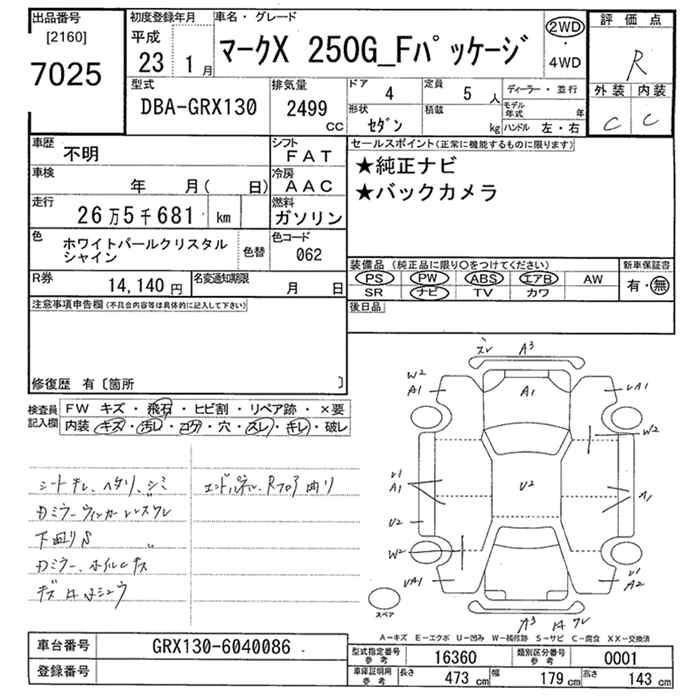 出品番号
[2160]
7025
初度登録年月
平成
23 1月
車名・グレード
マークX 250G_Fパッケージ
2WD
・
4WD
評価点
R
外装 内装
C C
型式
DBA-GRX130
排気量
2499
CC
ドア
4
定員
5 人
形状
セダン
積載
kg
ディーラー・並行
モデル年式 年
ハンドル 左・右
車歴
不明
シフト
FAT
車検
年 月( 日)
冷房
AAC
走行
26万5千681 km
燃料
ガソリン
色
ホワイトパールクリスタル
シャイン
色替
色コード
062
R券
14,140円
名変通知期限
月 日
セールスポイント(正常に機能するものに限ります)
★純正ナビ
★バックカメラ
装備品(純正品に限り〇をつけてください)
PS PW ABS エアB AW
SR ナビ TV カワ
新車保証書
有・無
後日品
注意事項申告欄(不具合内容等は具体的に記入して下さい)
修復歴 有〔箇所 〕
検査員
記入欄
FW キズ・飛石・ヒビ割・リペア跡・×要
内装 キズ・汚レ・コゲ・穴・スレ・キレ・破レ
シートキレ、ヘタリ、シミ
エンドパネル、Rフロア曲り
Dミラーウィンカーレンズワレ
下廻りS
Dミラー、ホイルキズ
キズ
スレ A3
W2
A1
A1
UA1
W2
U1
A1
U2
U2
A1
W2
UA1
U1
A2
A3
ワレ
スペア
A-キズ E-エクボ U-凹み W-補修跡 S-サビ C-腐食 XX-交換済
車台番号
GRX130-6040086
登録番号
型式指定番号
参考
16360
類別区分番号
参考
0001
車庫証明用
参考
長さ
473 cm
幅
179 cm
高さ
143 cm